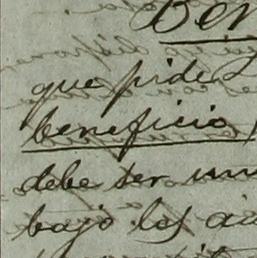 Ben
que pide
beneficio
debe ser un
bajo los au